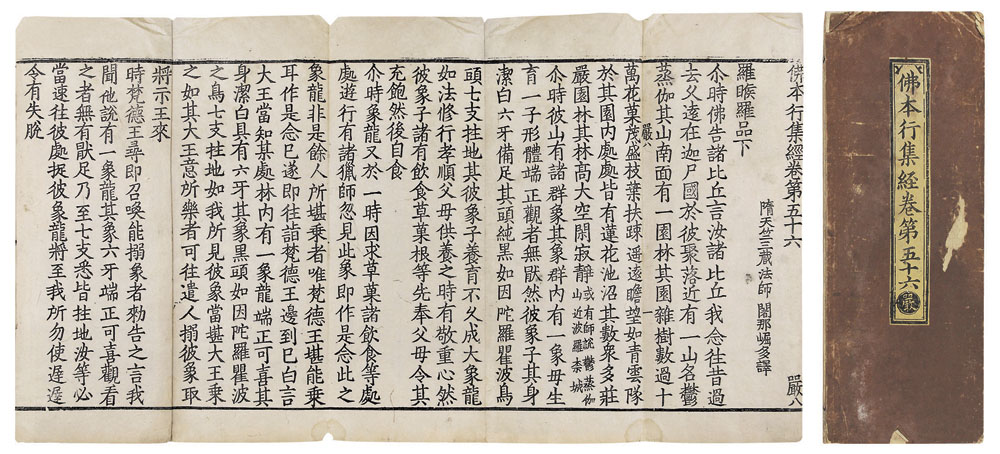 佛本行集經卷第五十六 嚴八
隋天竺三藏法師 闍那崛多譯
羅睺羅品下
尒時佛告諸比丘言汝諸比丘我念往昔過
去久遠在迦尸國於彼聚落近有一山名鬱
蒸伽其山南面有一園林其園雜樹數過十
嚴八 一
萬花菓茂盛枝葉扶踈遥遠瞻望如青雲隊
於其園內處處皆有蓮花池沼其數衆多莊
嚴園林其林髙大空閑寂靜或有師說鬱蒸伽山近波羅柰城
尒時彼山有諸象群其象群內有一象母生
育一子形體端正觀者無猒然彼象子其身
潔白六牙備足其頭純黑如因陀羅瞿波鳥
頭七支拄地其彼象子養育不久成大象龍
如法修行孝順父母供養之時有敬重心然
彼象子諸有飲食草菓根等先奉父母令其
充飽然後自食
尒時象龍又於一時因求草菓諸飲食等處
處遊行有諸獵師忽見此象即作是念此之
象龍非是餘人所堪乘者唯梵德王堪能乘
耳作是念已遂即往詣梵德王邊到已白言
大王當知某處林內有一象龍端正可喜其
身潔白具有六牙其象黑頭如因陀羅瞿波
之鳥七支拄地如我所見彼象當甚大王乘
之如其大王意所樂者可往遣人搦彼象取
將示王來
時梵德王尋即召喚能搦象者勑告之言我
聞他說有一象龍其象六牙端正可喜觀看
之者無有猒足乃至七支悉皆拄地汝等必
當速往彼處捉彼象龍將至我所勿使遲遲
令有失脫
佛本行集經卷第五十六 嚴